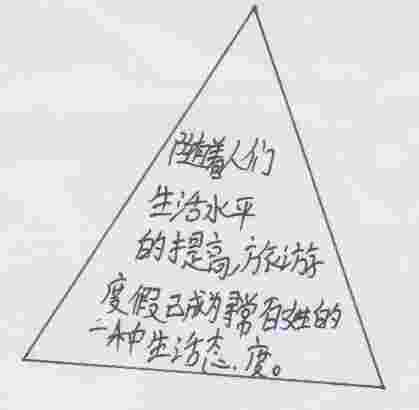 随着人们
生活水平
的提高,旅游
度假已成为寻常百姓的
一种生活态度。